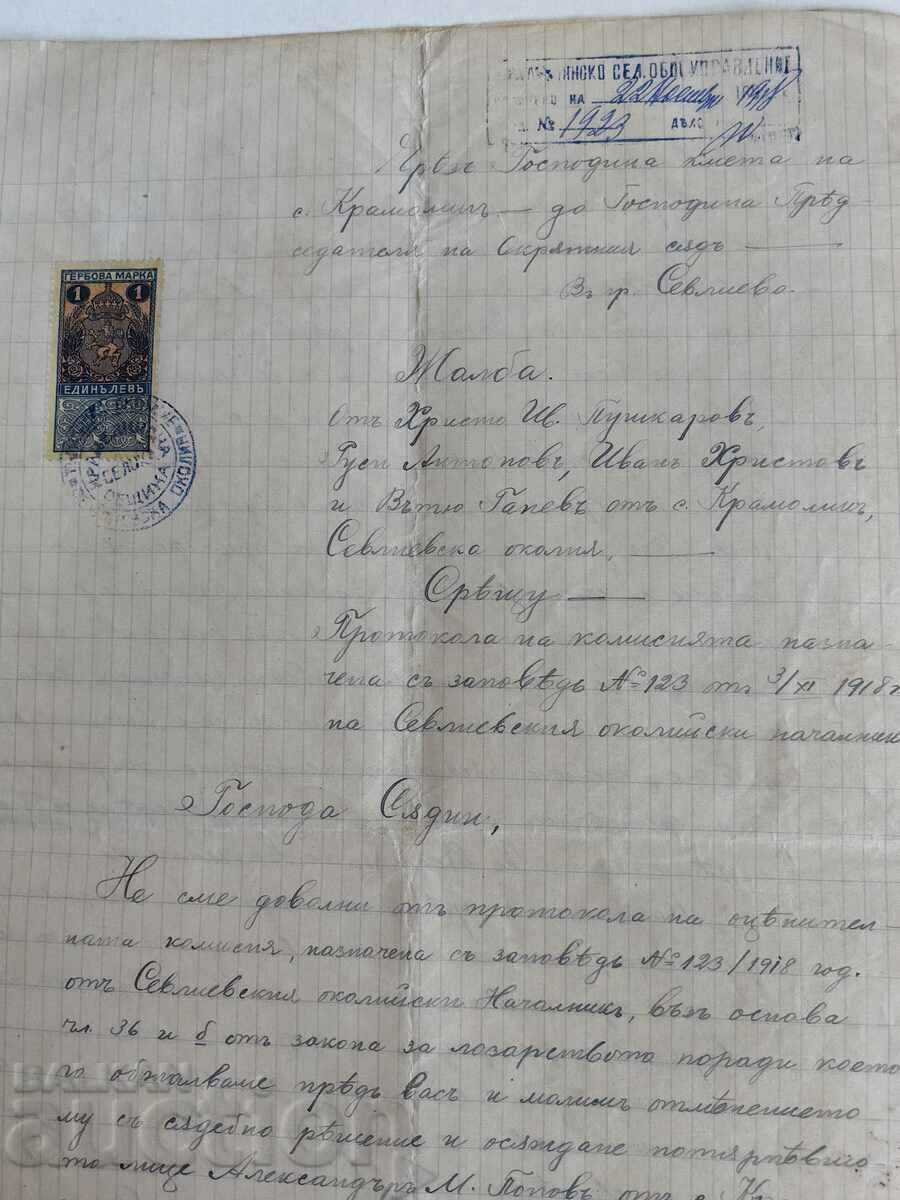 СЕЛ. ОБЩ. УПРАВЛЕНИЕ
НА 22 Ноемврий 1918
№ 1923 ДѢЛО
Чрѣзъ Господина Кмета на
с. Крамолинъ — до Господина Прѣд-
седателя на Окрѫжния сѫдъ —
Въ гр. Севлиево.
ГЕРБОВА МАРКА
1 1
ЕДИНЪ ЛЕВЪ
СЕЛСКА
ОБЩИНА
Жалба.
Отъ Христо Ив. Пушкаровъ,
Руси Антоновъ, Иванъ Христовъ
и Вътю Ганевъ отъ с. Крамолинъ,
Севлиевска околия, —
Срѣщу —
Протокола на комисията назна-
чена съ заповѣдь № 123 отъ 3/XI 1918 г.
на Севлиевския околийски началник
Господа Сѫдии,
Не сме доволни отъ протокола на оцѣнител-
ната комисия, назначена съ заповѣдь № 123/1918 год.
отъ Севлиевския околийски Началникъ, възъ основа
чл. 36 и б отъ закона за лозарството поради което
го обжалваме прѣдъ васъ и молимъ отмѣнението
му съ сѫдебно рѣшение и осѫждане потърпѣвшо-
то лице Александъръ М. Поповъ отъ с.
BALKAN
auction